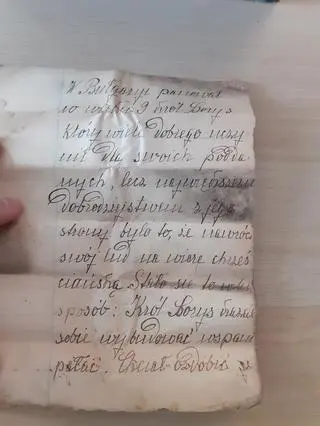 W Bułgaryi panował
w wieku 9 król Borys
który wiele dobrego uczy
nił dla swoich podda
nych, lecz największem
dobrodziejstwem z jego
strony było to, że nawrócił
swój lud na wiarę chrześ
ciańską Stało się to w ten
sposób: Król Borys kazał
sobie wybudować wspani
pałac. Chciał ozdobić